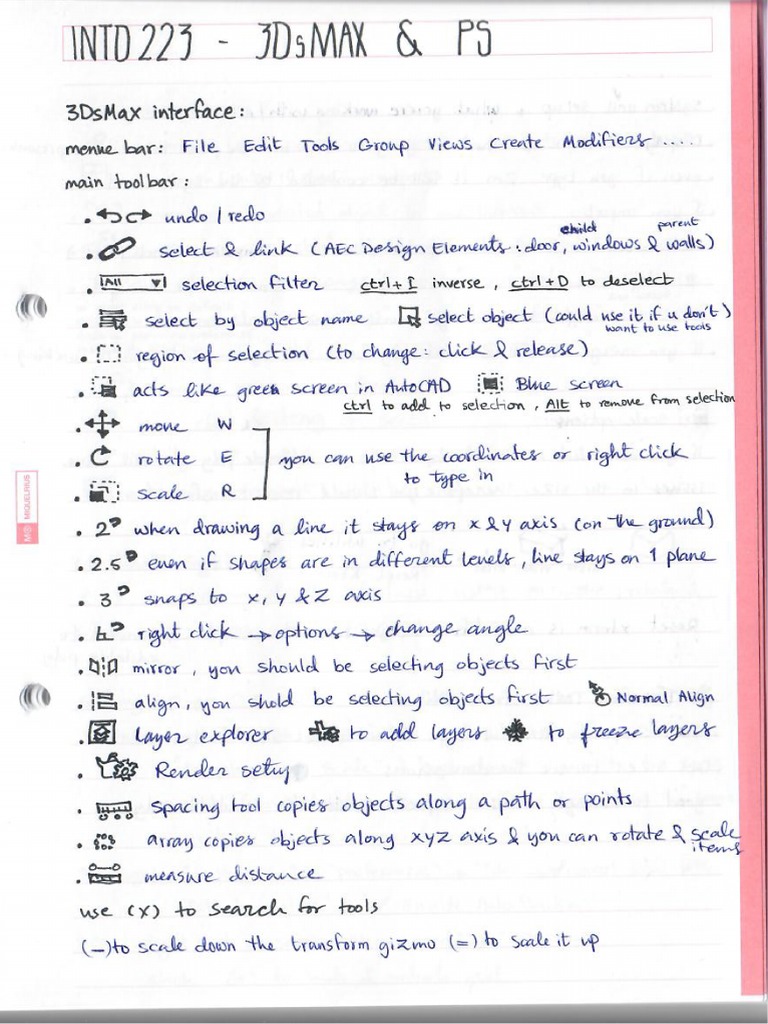 INTD 223 - 3DsMAX & PS
3DsMax interface:
menue bar: File Edit Tools Group Views Create Modifiers ....
main toolbar:
undo / redo
child parent
select & link (AEC Design Elements: door, windows & walls)
All selection filter ctrl+I inverse, ctrl+D to deselect
select by object name select object (could use it if u don't)
want to use tools
region of selection (to change: click & release)
acts like green screen in AutoCAD Blue screen
ctrl to add to selection, Alt to remove from selection
move W
rotate E you can use the coordinates or right click
to type in
scale R
2 when drawing a line it stays on x & y axis (on the ground)
2.5 even if shapes are in different levels, line stays on 1 plane
3 snaps to x, y & z axis
right click → options → change angle
mirror, you should be selecting objects first
align, you shold be selecting objects first Normal Align
Layer explorer to add layers to freeze layers
Render setup
spacing tool copies objects along a path or points
array copies objects along xyz axis & you can rotate & scale
items
measure distance
use (x) to search for tools
(-) to scale down the transform gizmo (=) to scale it up
M® MIQUELRIUS